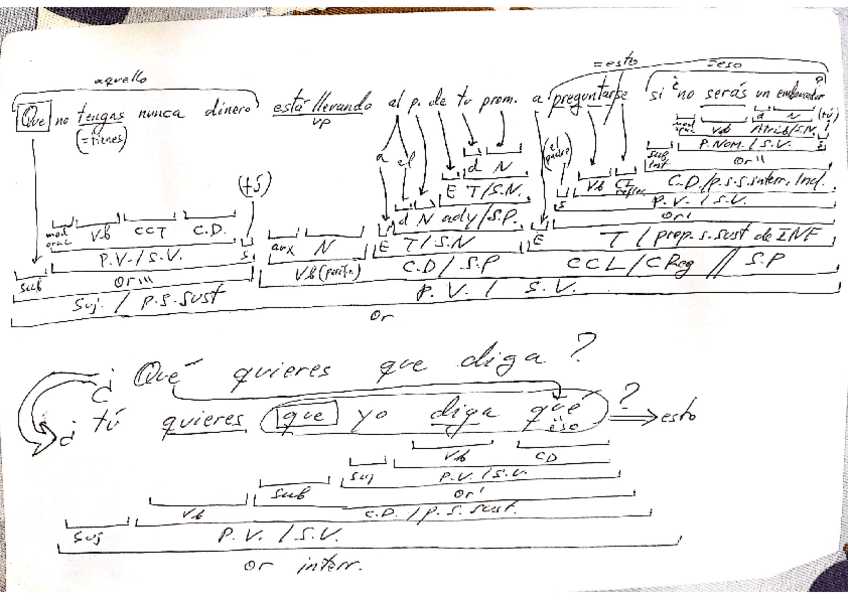 aquello =esto =eso
Que no tengas nunca dinero está llevando al p. de tu prom. a preguntarse si ¿no serás un embaucador?
(=tienes) VP
a el d N (el padre) d N (tú)
(tú) E T/S.N. s V.b CI reflex V.b Atrib/S.N. s
mod orac V.b CCT C.D. d N ady/S.P. sub int P.Nom./S.V.
P.V./S.V. s aux N E T/S.N E or"
sub or''' V.b (perífr.) C.D/S.P C.D./p.s.s.interr. Ind.
Suj. / p.s.sust P.V./S.V.
or'
T / prop.s.sust de INF
CCL/CReg // S.P
P.V. / S.V.
or
¿Qué quieres que diga?
¿tú quieres que yo diga qué? ⇒ esto
eso
V.b CD
suj P.V./S.V.
sub or'
V.b C.D./p.s.sust.
suj P.V. /S.V.
or interr.